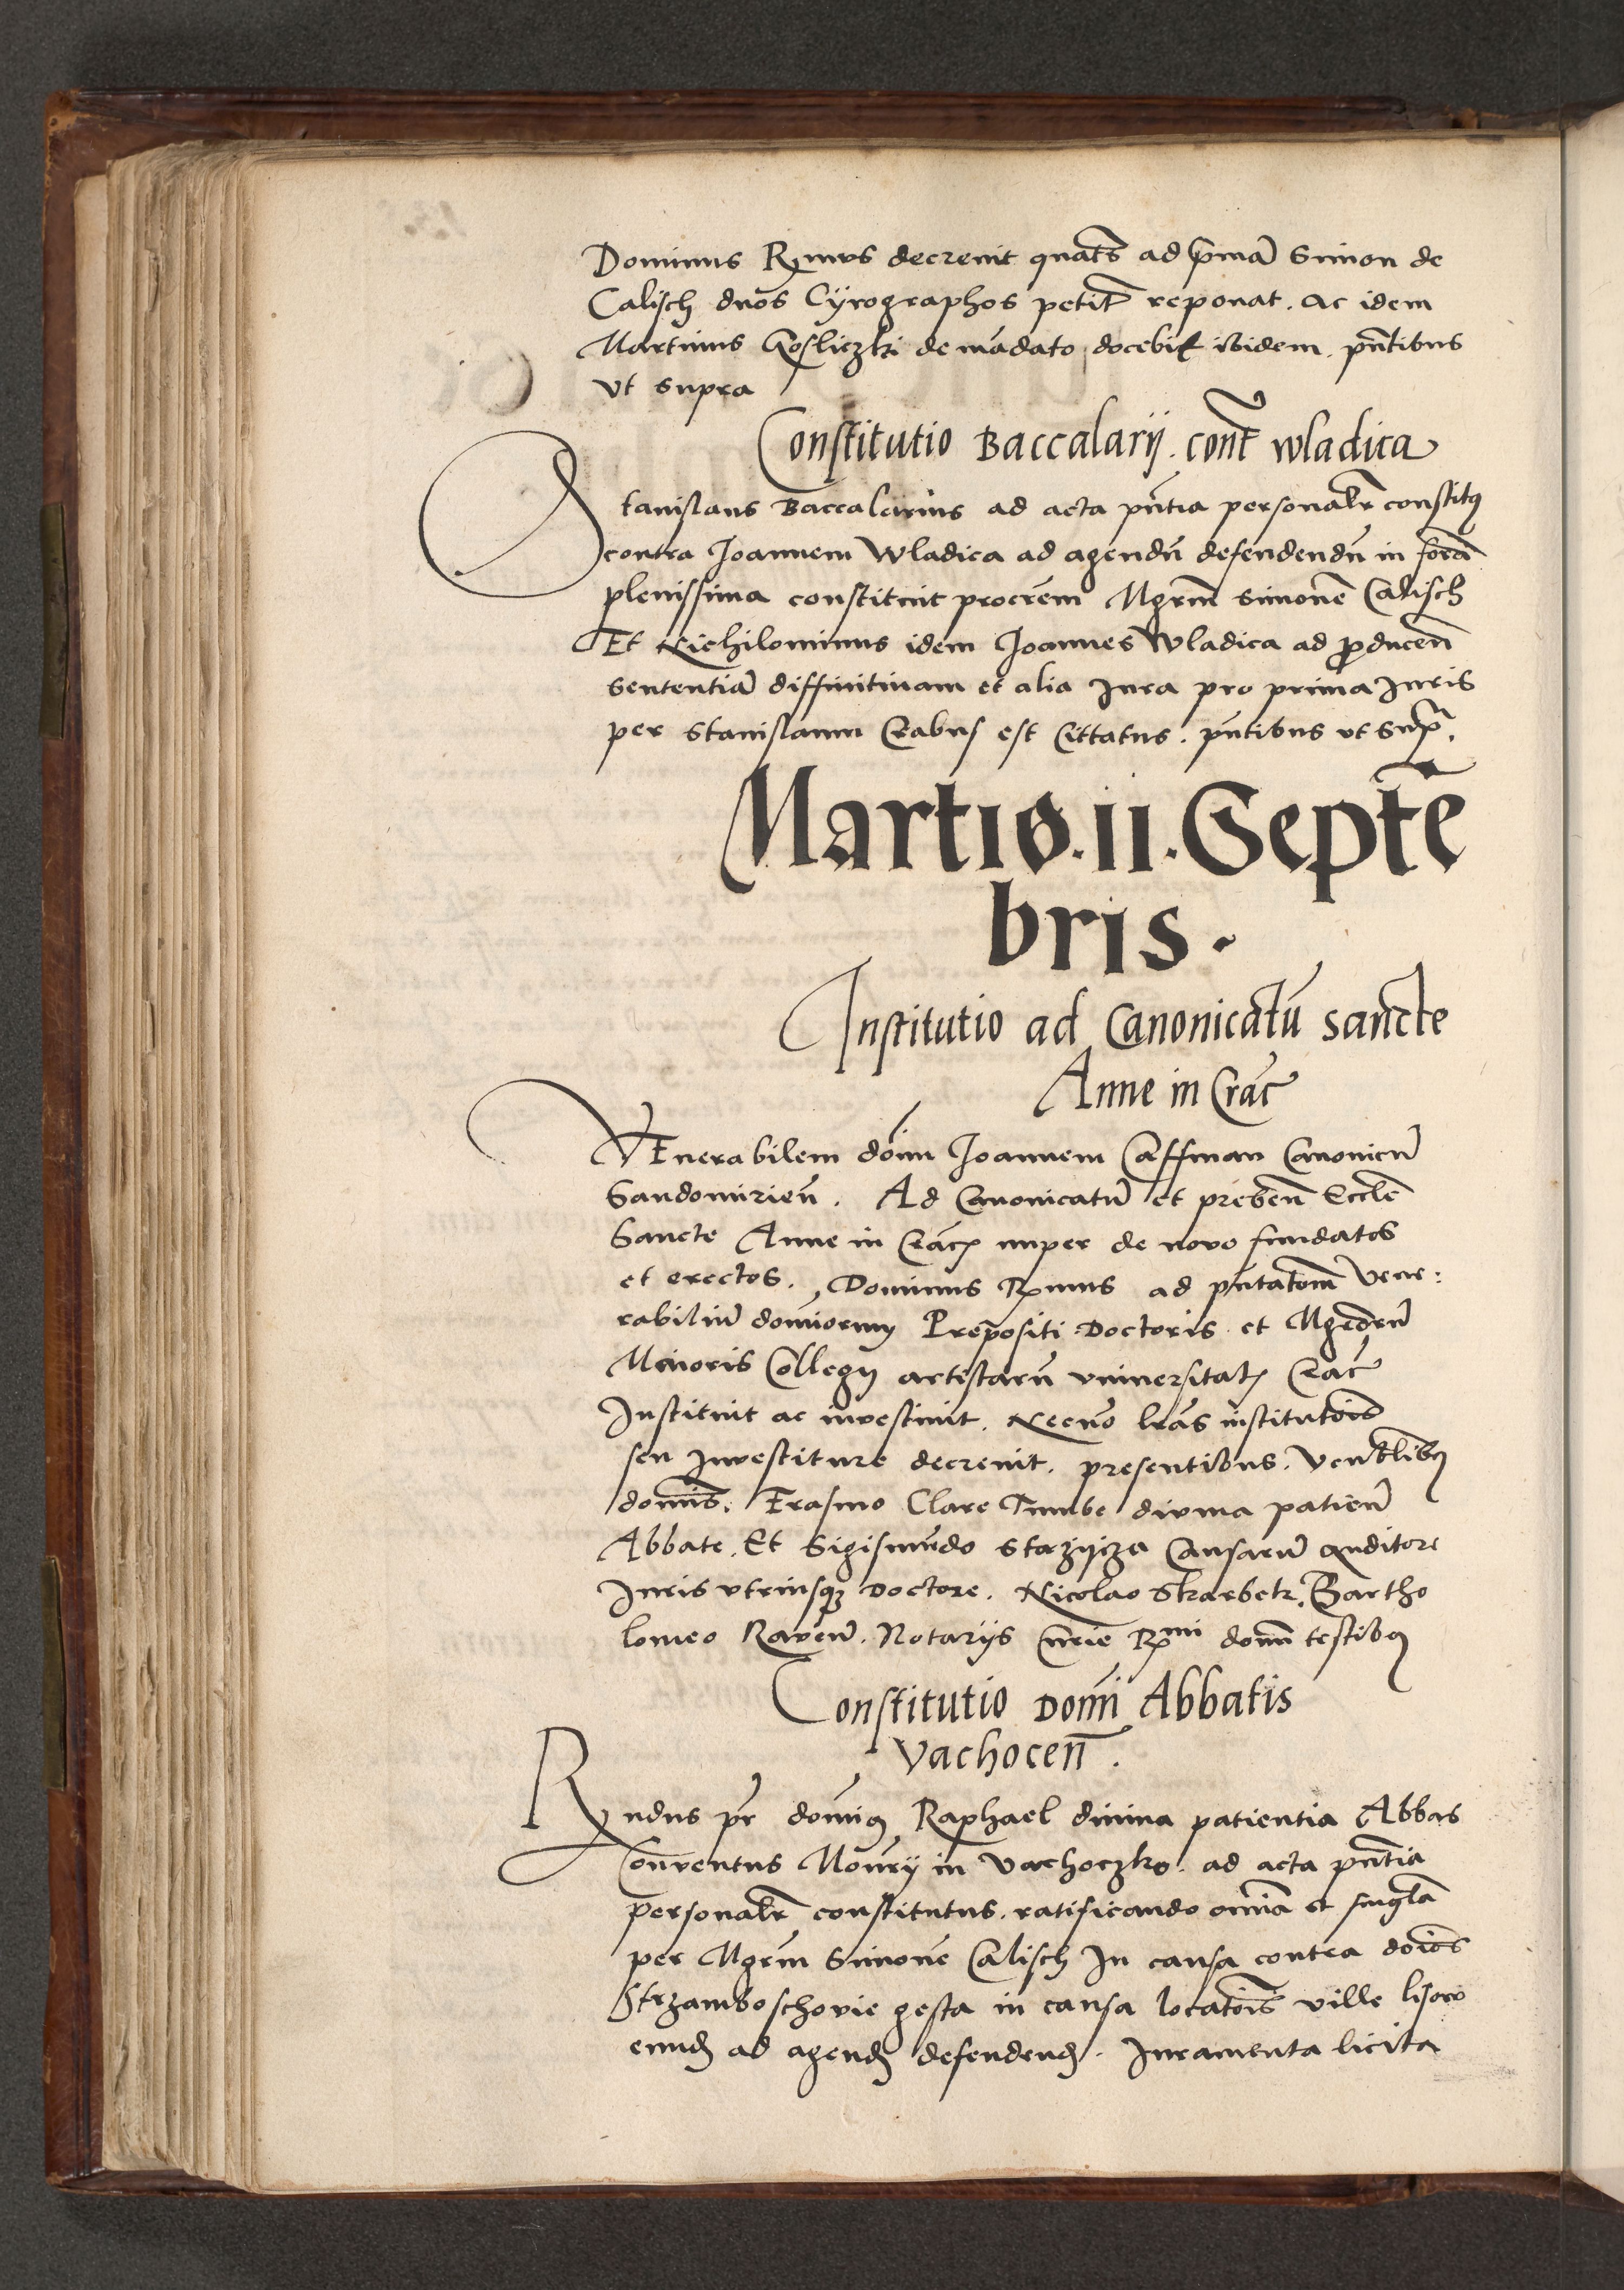 Dominus Rxmus decreuit quatēs ad p̄mā Simon de
Calisch duos Cyrographos petitꝰ reponat. ac idem
Martinus Gosliczki de mādato docebit ibidem. pn̄tibus
vt supra
Constitutio Baccalarij. cont̄ Wladica
Stanislaus Baccalarius ad acta pn̄tia personalr̄ constitꝰ
contra Joannem Wladica ad agendū defendendū in formā
plenissima constituit procrēm Mgrm̄ Simonē Calisch
Et Nichilominus idem Joannes Wladica ad ꝓducen̄
sententiā diffinitiuam et alia Jura pro prima Juris
per Stanislaum Crabus est Cittatus. pn̄tibus vt supͣ.
Martiꝰ .ii. Septē
bris.
Institutio ad Canonicatū sancte
Anne in Crac̄
VEnerabilem dōm Joannem Caffman Canonicū
Sandomirien̄. Ad Canonicatū et preben̄ Eccle̅
Sancte Anne in Crac̄ nuper de nouo fundatos
et erectos. Dominus Rxmus ad pn̄tatōnm Vene:
rabiliū dominorum Prepositi Doctoris et Mgrorū
Minoris Collegij artistarū vniuersitatꝭ Crac̄
Instituit ac inuestiuit. Necnō lrās institutōis
seu Inuestiture decreuit. presentibus. Ven̄blibꝰ
domīs. Erasmo Clare Tumbe diuina patien̄
Abbate. Et Sigismūdo Starzijcza Causarū auditore
Juris vtriusqꝫ Doctore. Nicolao Skarbek. Bartho
lomeo Raven̄. Notarijs Curie Rxmi domī testibꝰ
Constitutio Domī Abbatis
Vachocen̄.
Rxndus pr̄ domīꝰ Raphael diuina patientia Abbas
Conuentus Monrij in Vachoczko. ad acta pn̄tia
personalr̄ constitutus. ratificando om̄ia et singla
per Mgrm̄ Simonē Calisch In causa contra doīos
Strzamboschovie gesta in causa locatōis ville lisow
eundꝭ ad agendꝭ defendendꝭ. Juramenta licita